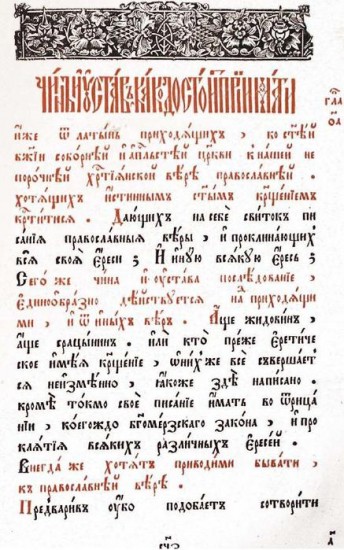 Чи́нъ и҆ ᲂу҆ста́въ ка́кѡ досто́итъ прїима́ти
гла
о҃а
и҆̀же ѿ латы́нъ приходѧ́щихъ, ко ст҃ѣ́й
бж҃їи собо́рнѣй и҆ а҆пⷭ҇льстѣй цр҃кви к на́шей не
поро́чнѣй хрⷭ҇тїѧ́нской вѣ́рѣ правосла́внѣй.
хотѧ́щихъ и҆́стиннымъ ст҃ы́мъ крⷳ҇ще́нїемъ
крⷭ҇ти́тисѧ. Даю́щихъ на себѐ сви́токъ пи
са́нїѧ правосла́вныѧ вѣ́ры, и҆ проклина́ющихъ
всѧ̀ своѧ̀ є҆́реси; И҆ и҆нꙋ́ю всѧ́кꙋю є҆́ресь;
Сего́ же чи́на и҆ ᲂу҆ста́ва послѣ́дованїе,
є҆динообра́зно дѣ́йствꙋетсѧ на приходѧ́щи
ми, и҆ ѿ и҆ны́хъ вѣ́ръ. А҆́ще жидови́нъ,
а҆́ще срацы́нинъ. и҆лѝ кто̀ пре́же є҆рети́че
ское и҆мѣ́ѧ крⷳ҇ще́нїе, ѡ҆ ни́хже всѐ соверша́ет
сѧ неизмѣ́нно, ꙗ҆́коже здѣ̀ напи́сано.
кромѣ̀ то́кмо своѐ писа́нїе и҆́мать во ѿрица́
нїи, кое́гождо бг҃оме́рзскаго зако́на, и҆ про
клѧ́тїѧ всѧ́кихъ разли́чныхъ є҆ресе́й.
Внегда́ же хотѧ́тъ приводи́ми быва́ти,
къ правосла́внѣй вѣ́рѣ.
Предвари́въ ᲂу҆̀бо подоба́етъ сотвори́ти